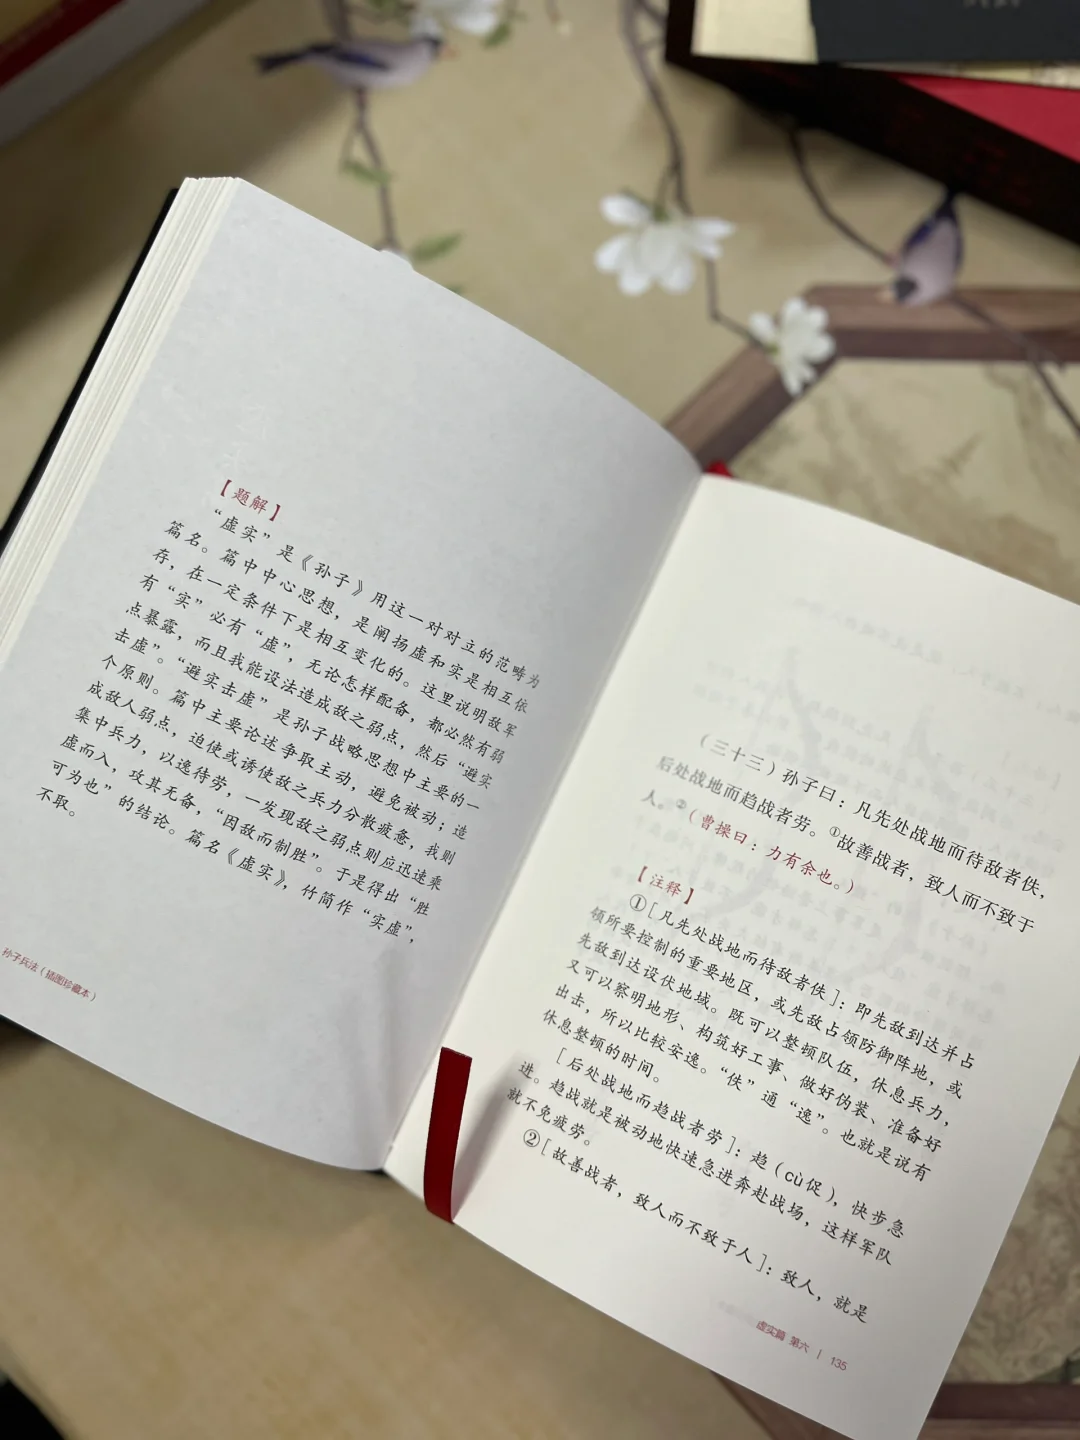 【题解】
“虚实”是《孙子》用这一对对立的范畴为
篇名。篇中中心思想，是阐扬虚和实是相互依
存，在一定条件下是相互变化的。这里说明敌军
有“实”必有“虚”，无论怎样配备，都必然有弱
点暴露，而且我能设法造成敌之弱点，然后“避实
击虚”。“避实击虚”是孙子战略思想中主要的一
个原则。篇中主要论述争取主动，避免被动；造
成敌人弱点，迫使或诱使敌之兵力分散疲惫，我则
集中兵力，以逸待劳，一发现敌之弱点则应迅速乘
虚而入，攻其无备，“因敌而制胜”。于是得出“胜
可为也”的结论。篇名《虚实》，竹简作“实虚”，
不取。
孙子兵法（插图珍藏本）
（三十三）孙子曰：凡先处战地而待敌者佚，
后处战地而趋战者劳。①故善战者，致人而不致于
人。②（曹操曰：力有余也。）
【注释】
①［凡先处战地而待敌者佚］：即先敌到达并占
领所要控制的重要地区，或先敌占领防御阵地，或
先敌到达设伏地域。既可以整顿队伍，休息兵力，
又可以察明地形、构筑好工事、做好伪装、准备好
出击，所以比较安逸。“佚”通“逸”。也就是说有
休息整顿的时间。
［后处战地而趋战者劳］：趋（cù促），快步急
进。趋战就是被动地快速急进奔赴战场，这样军队
就不免疲劳。
②［故善战者，致人而不致于人］：致人，就是
虚实篇 第六 | 135